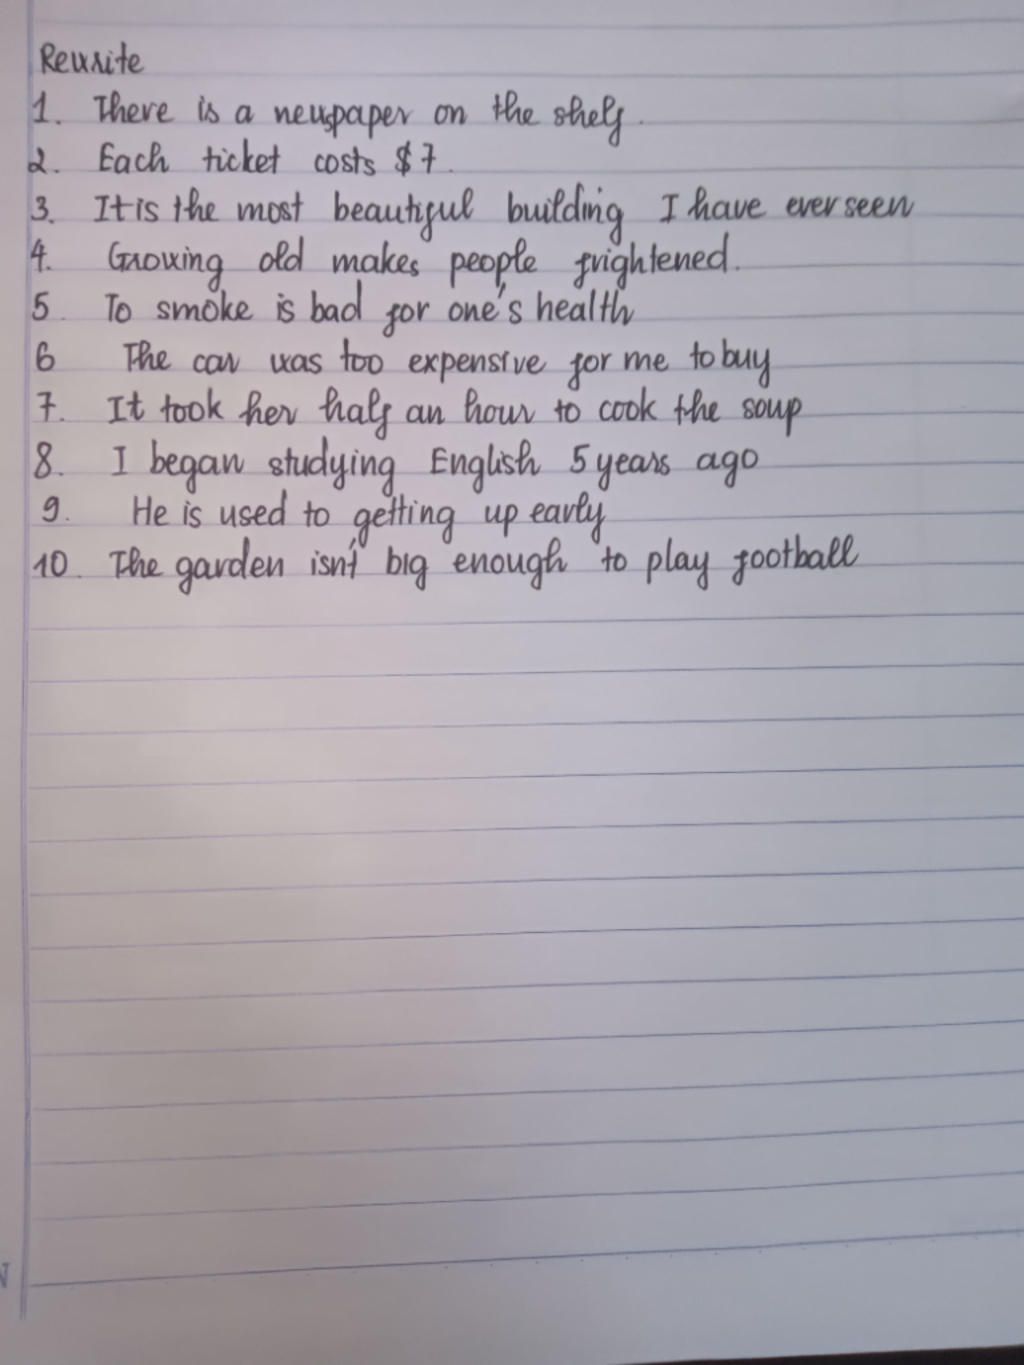 Rewrite
1. There is a newspaper on the shelf.
2. Each ticket costs $7.
3. It is the most beautiful building I have ever seen
4. Growing old makes people frightened.
5. To smoke is bad for one's health
6 The car was too expensive for me to buy
7. It took her half an hour to cook the soup
8. I began studying English 5 years ago
9. He is used to getting up early
10. The garden isn't big enough to play football
N